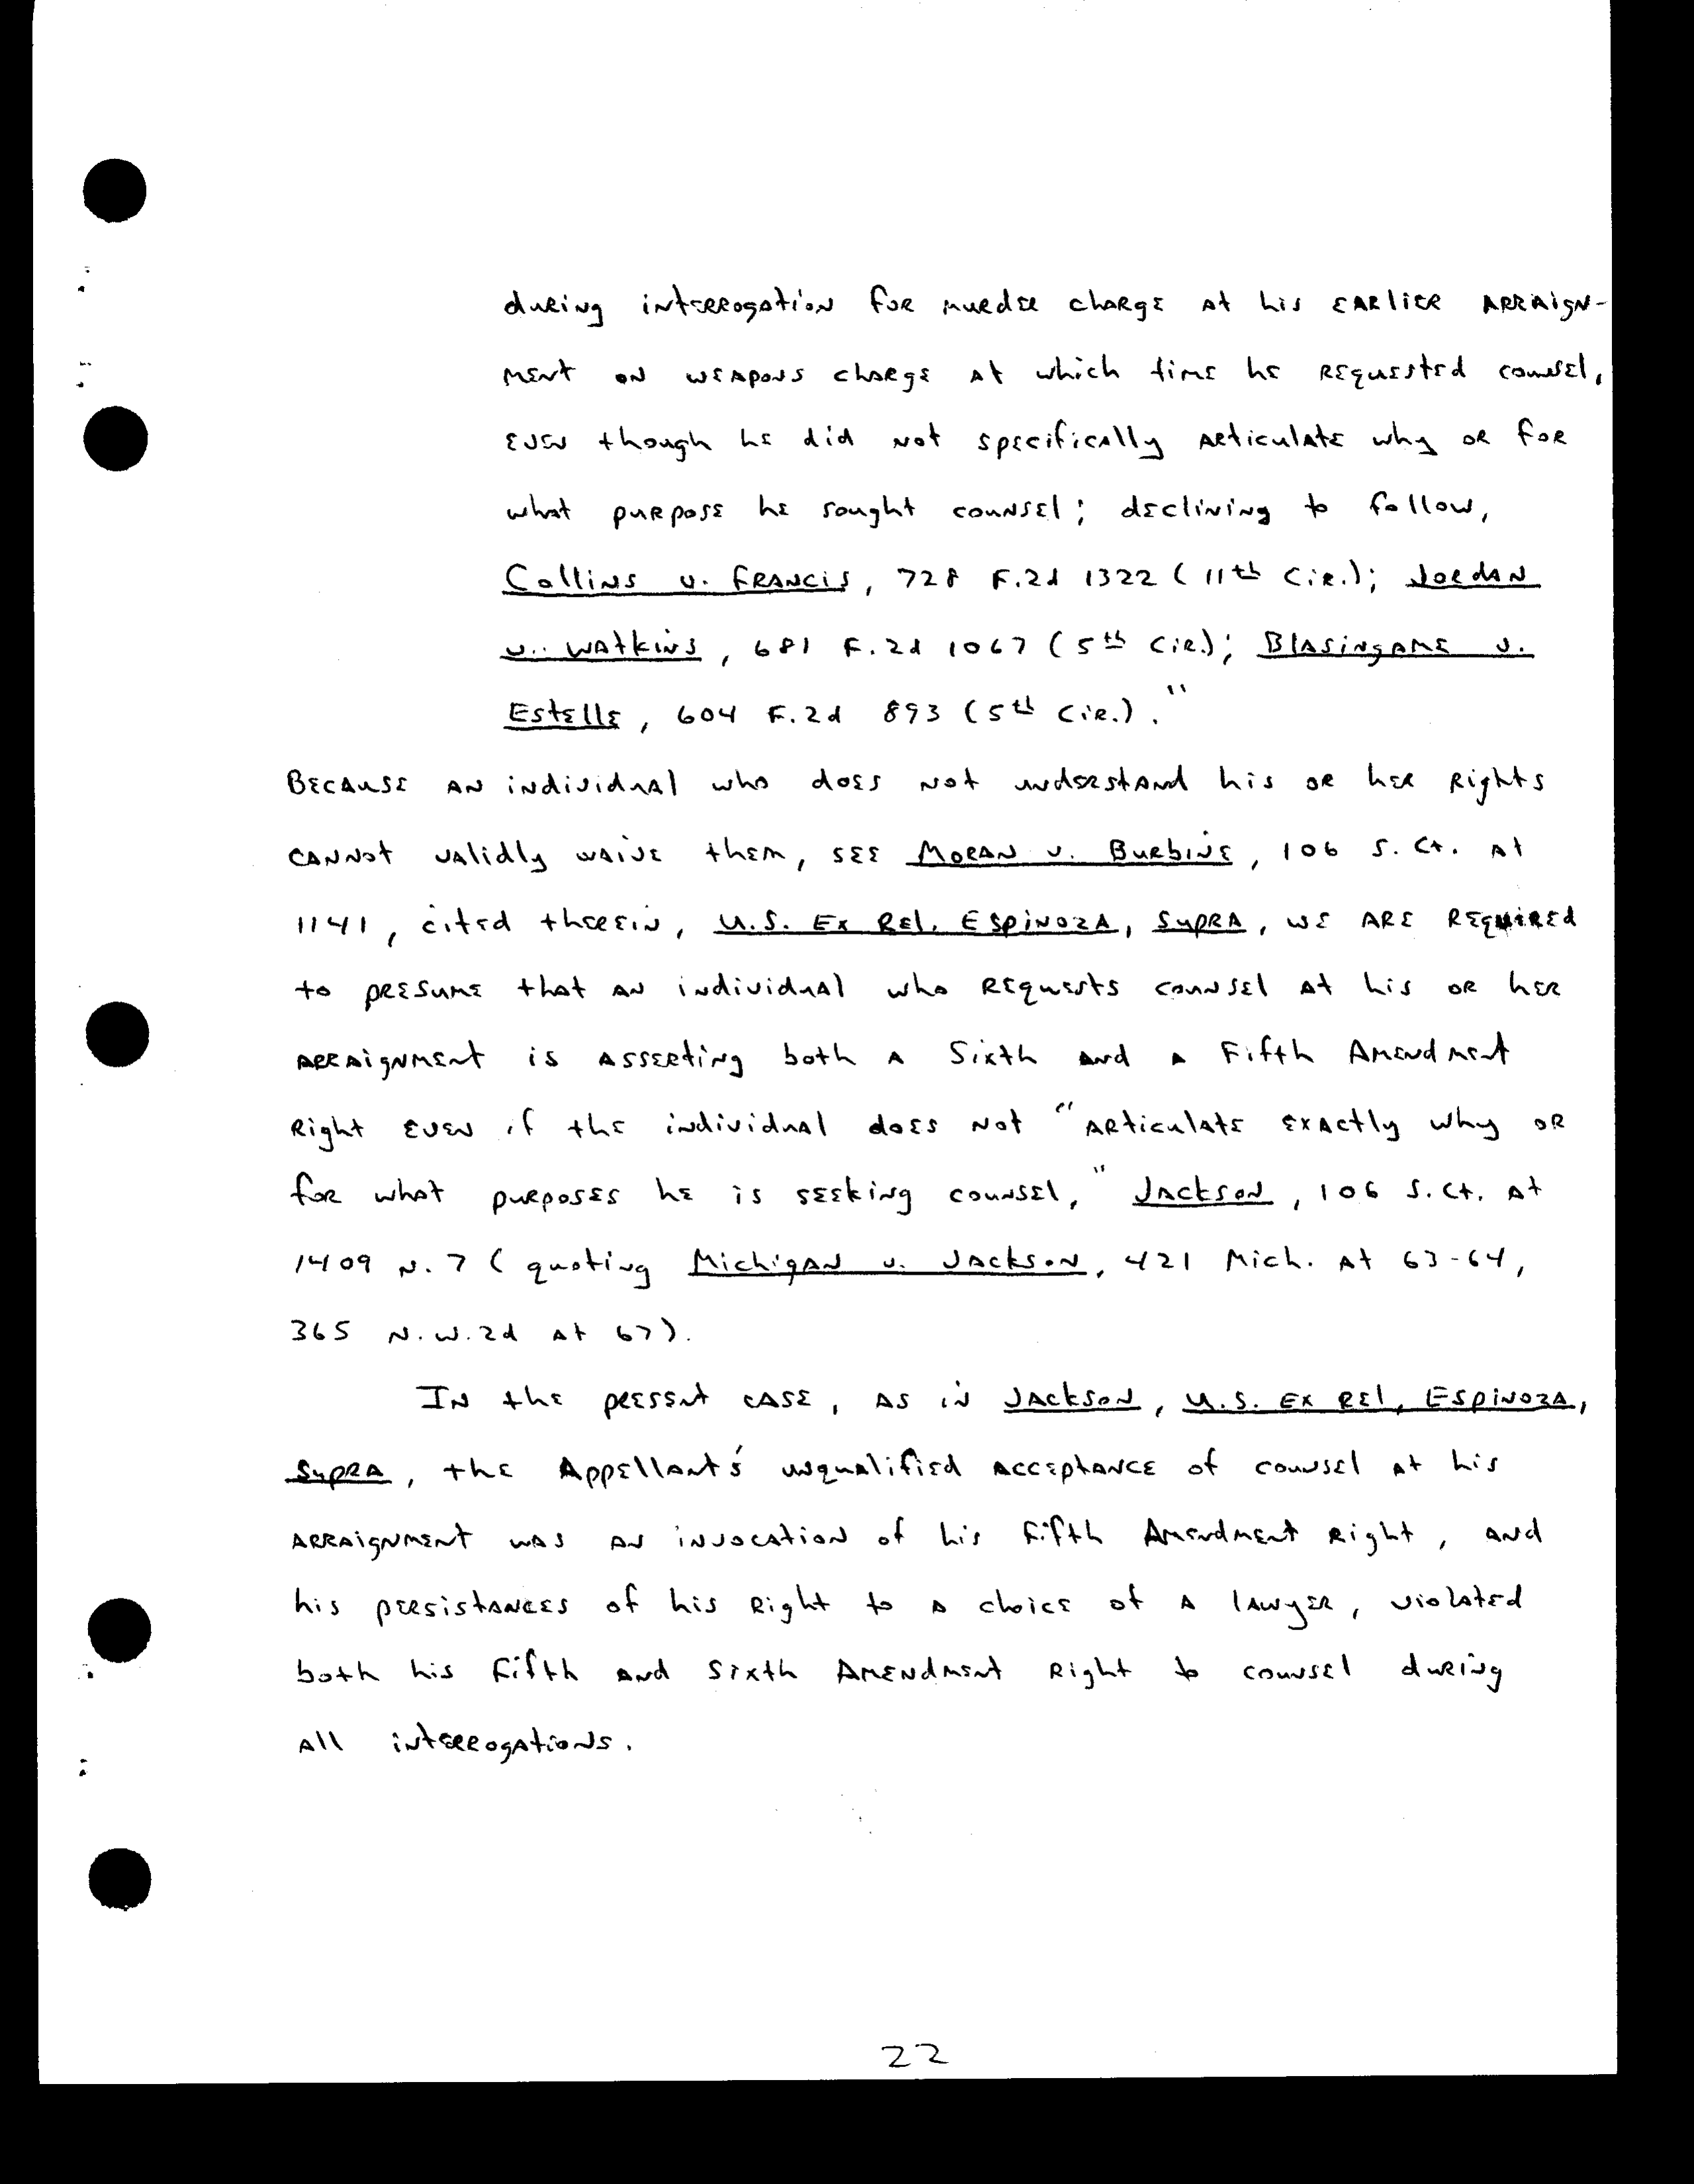 during interrogation for murder charge at his earlier arraign-
ment on weapons charge at which time he requested counsel,
even though he did not specifically articulate why or for
what purpose he sought counsel; declining to follow,
Collins v. Francis, 728 F.2d 1322 (11th Cir.); Jordan
v. Watkins, 681 F.2d 1067 (5th Cir.); Blasingame v.
Estelle, 604 F.2d 893 (5th Cir.)."
Because an individual who does not understand his or her rights
cannot validly waive them, see Moran v. Burbine, 106 S. Ct. at
1141, cited therein, U.S. Ex Rel. Espinoza, Supra, we are required
to presume that an individual who requests counsel at his or her
arraignment is asserting both a Sixth and a Fifth Amendment
Right even if the individual does not "articulate exactly why or
for what purposes he is seeking counsel," Jackson, 106 S. Ct. at
1409 n. 7 (quoting Michigan v. Jackson, 421 Mich. at 63-64,
365 N.W.2d at 67).
In the present case, as in Jackson, U.S. Ex Rel, Espinoza,
Supra, the Appellant's unqualified acceptance of counsel at his
arraignment was an invocation of his Fifth Amendment Right, and
his persistances of his Right to a choice of a lawyer, violated
both his Fifth and Sixth Amendment Right to counsel during
all interrogations.
22